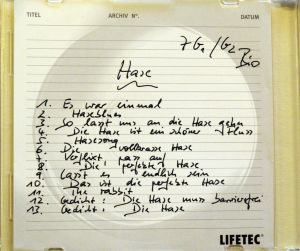 TITEL ARCHIV N°. DATUM
Bio
Hase
1. Es war einmal
2. Haseblues
3. So lasst uns an die Hase gehen
4. Die Hase ist ein schöner Fluss
5. Hasesong
6. Die Hase
7. passt auf
8. Die perfekte Hase
9. Lasst es endlich sein
10. Das ist die perfekte Hase
11. The rabbit
12. Gedicht: Die Hase muss barrierefrei
13. Gedicht: Die Hase
LIFETEC®